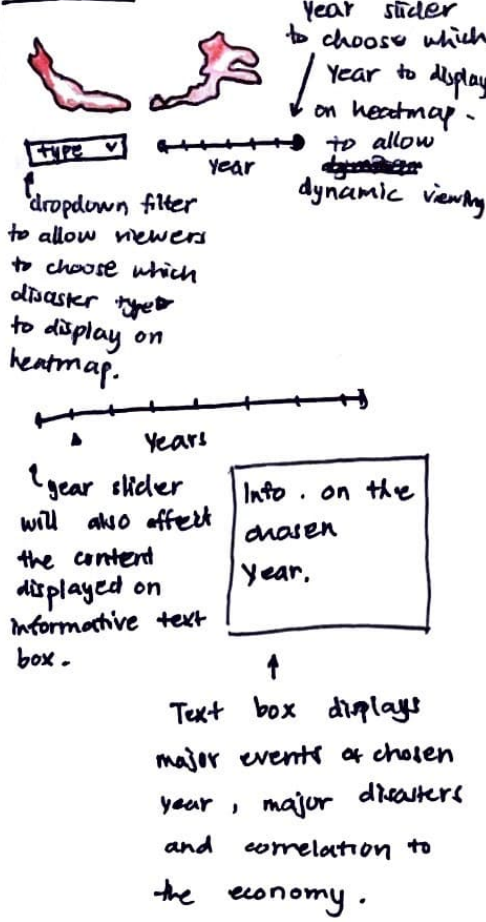 Year slider
to choose which
Year to display
on heatmap.
to allow
dynamic viewing
type
Year
dropdown filter
to allow viewers
to choose which
disaster type
to display on
heatmap.
Years
year slider
will also affect
the content
displayed on
informative text
box.
Info. on the
chosen
Year.
Text box displays
major events of chosen
year, major disasters
and correlation to
the economy.